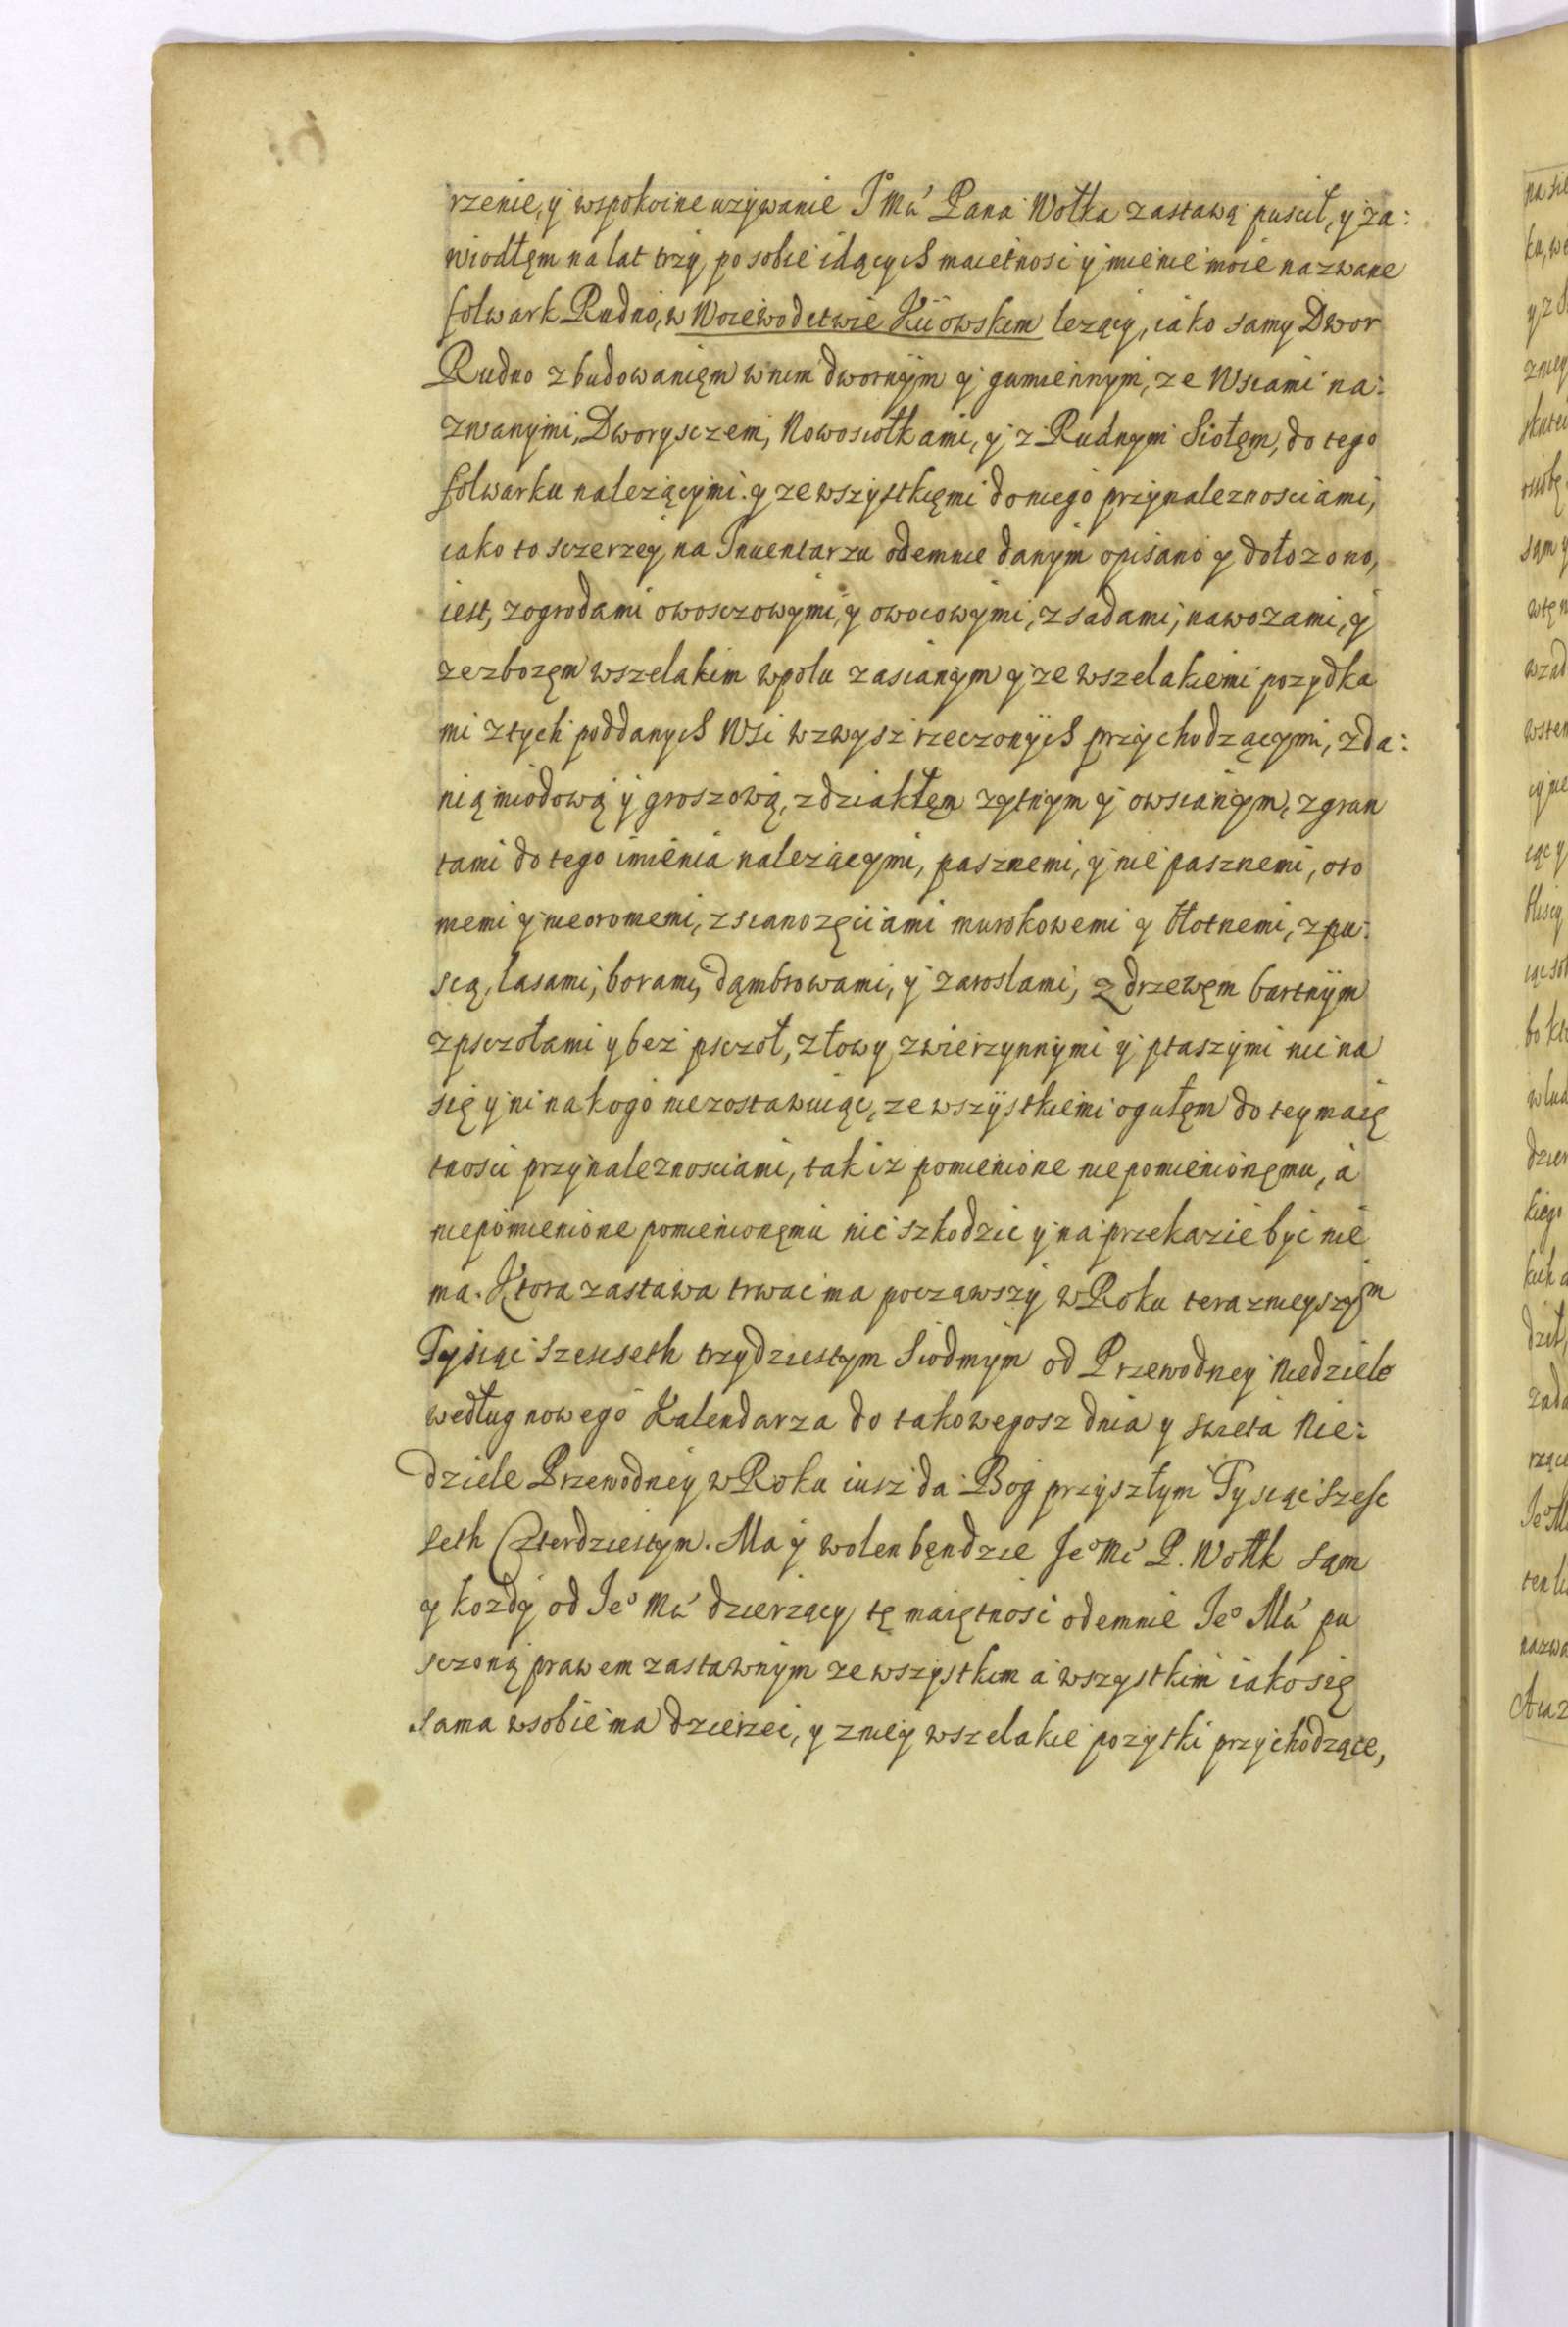 rzenie, y wspokoine uzywanie Jº Mci Pana Wołka zastawą puscił, y za:
wiodłęm na lat trzy, po sobie idących maietnosc y mienie moie nazwane
folwark Rudno, w Woiewodctwie Kiiowskim lezący, iako samy Dwor
Rudno z budowanięm w nim dwornym y gumiennym, ze Wsiami na:
zwanymi, Dworysczem, Nowosiołkami, y z Rudnym Siołęm, do tego
folwarku nalezącymi. y ze wszystkięmi do niego przynaleznosciami,
iako to sczerzey na Inuentarzu odemnie danym opisano y dołozono,
iest, z ogrodami owosczowymi, y owocowymi, z sadami, nawozami, y
ze zbozęm wszelakim w polu zasianym y ze wszelakiemi pozydka
mi z tych poddanych Wsi wzwysz rzeczonych przychodzącymi, z da:
nią miodową y groszową, z dziakłęm zytnym y owsianym, z grun
tami do tego imienia nalezącymi, pasznemi, y nie pasznemi, oro
memi y nieoromemi, z sianozęciami murokowemi y błotnemi, z pu:
scą, lasami, borami, dąmbrowami, y zaroslami, z drzewęm bartnym
z psczołami y bez psczół, z łowy zwierzynnymi y ptaszymi nic na
się y ni na kogo nie zostawuiąc, ze wszystkiemi ogułęm do tey maię
tnosci przynaleznosciami, tak iz pomienione niepomienionęmu, a
niepomienione pomienionęmu nic szkodzic y na przekazie byc nie
ma. Ktora zastawa trwac ma począwszy w Roku teraznieyszym
Tysiąc szescseth trzydziestym siodmym od Przewodney Niedziele
według nowego Kalendarza do takowegosz dnia y swieta Nie:
dziele Przewodney w Roku iusz da Bog przyszłym Tysiąc szesc
seth Czterdziestym. Ma y wolen będzie Jeº Mci P. Wołk sąm
y kozdy od Jeº Mci dzierzący tę maiętnosc odemnie Jeº Mci pu
sczoną prawem zastawnym ze wszystkim a wszystkim iako się
sama w sobie ma dzierzec, y z niey wszelakie pozytki przychodzące,